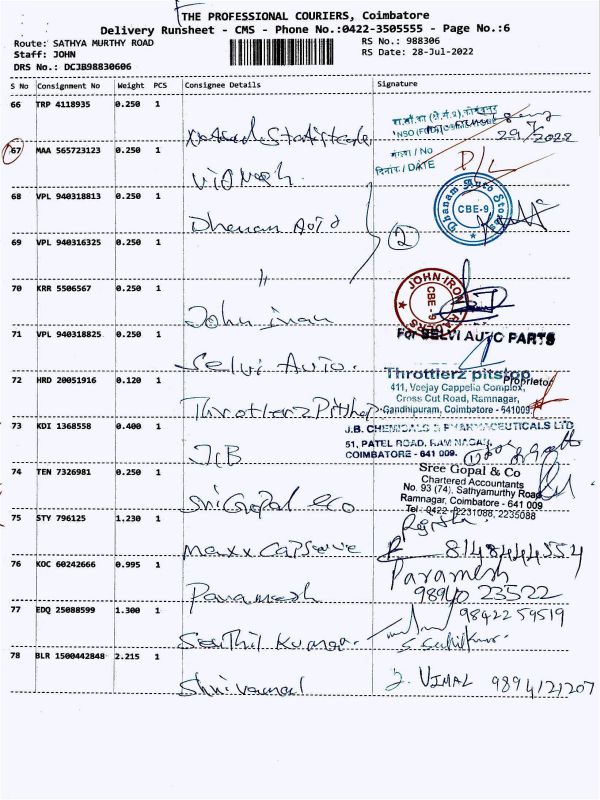 THE PROFESSIONAL COURIERS, Coimbatore
Delivery Runsheet - CMS - Phone No.:0422-3505555 - Page No.:6
Route: SATHYA MURTHY ROAD
RS No.: 988306
Staff: JOHN
RS Date: 28-Jul-2022
DRS No.: DCJB98830606
S No Consignment No Weight PCS Consignee Details Signature
66 TRP 4118935 0.250 1
29/7/2022
67 MAA 565723123 0.250 1
संख्या / No
दिनांक / DATE
D/L
Vignesh
68 VPL 940318813 0.250 1
Dhanam Auto
Dhanam Auto Stores
CBE-9
2
69 VPL 940316325 0.250 1
"
70 KRR 5506567 0.250 1
John iron
JOHN IRON
CBE - 9
71 VPL 940318825 0.250 1
For SELVI AUTO PARTS
Selvi Auto.
Proprietor
72 HRD 20051916 0.120 1
Throttlerz pitstop
411, Veejay Cappella Complex,
Cross Cut Road, Ramnagar,
Gandhipuram, Coimbatore - 641009.
Throttlerz Pitstop
73 KDI 1368558 0.400 1
J.B. CHEMICALS & PHARMACEUTICALS LTD
51, PATEL ROAD, RAM NAGAR,
COIMBATORE - 641 009.
JCB
74 TEN 7326981 0.250 1
Sree Gopal & Co
Chartered Accountants
No. 93 (74), Sathyamurthy Road
Ramnagar, Coimbatore - 641 009
Tel : 0422 - 2231088, 2235088
Sri Gopal &co
75 STY 796125 1.230 1
Maxx Capserve
8148444554
76 KOC 60242666 0.995 1
Paramesh
Paramesh
98940 23522
77 EDQ 25088599 1.300 1
98422 59519
Senthil Kumar.
78 BLR 1500442848 2.215 1
J. VIMAL 9894121207